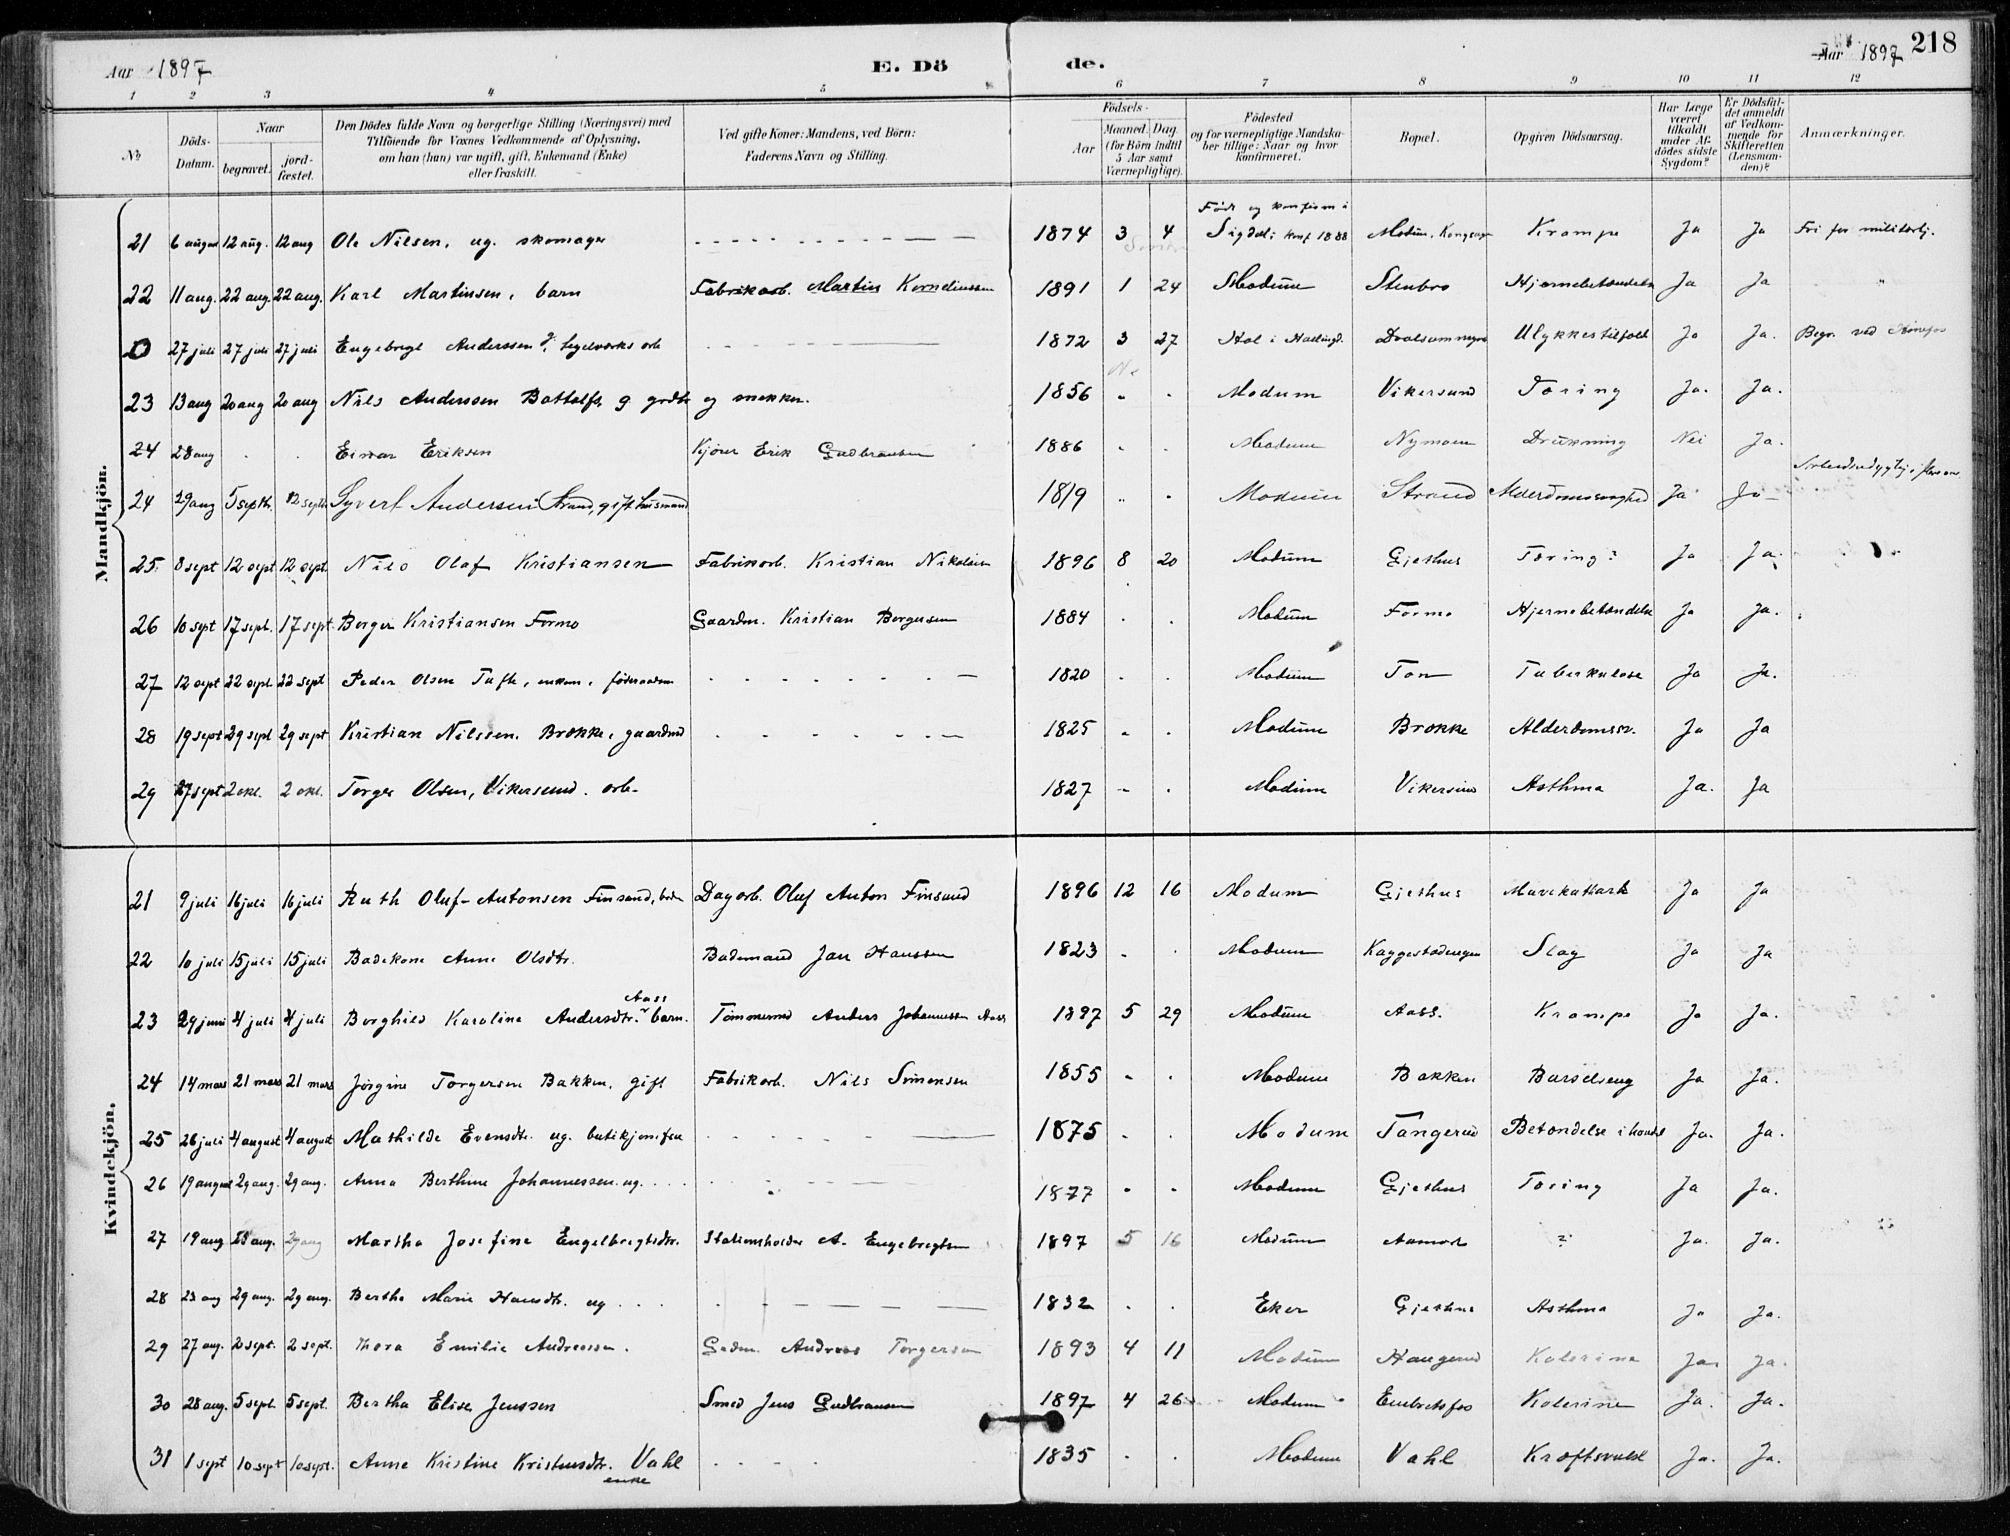 Aar 1897
E. Dö
de.
Aar 1897
218
1 2 3 4 5 6 7 8 9 10 11 12
№
Döds-Datum.
Naar
begravet.
jord-fæstet.
Den Dödes fulde Navn og borgerlige Stilling (Næringsvei) med
Tilföiende for Voxnes Vedkommende af Oplysning,
om han (hun) var ugift, gift, Enkemand (Enke)
eller fraskilt.
Ved gifte Koner: Mandens, ved Börn:
Faderens Navn og Stilling.
Födsels-
Aar
Maaned. Dag.
(for Börn indtil
5 Aar samt
Værnepligtige).
Födested
og for værnepligtige Mandska-
ber tillige: Naar og hvor
konfirmeret.
Bopæl.
Opgiven Dödsaarsag.
Har Læge
været
tilkaldt
under Af-
dödes sidste
Sygdom?
Er Dödsfal-
det anmeldt
af Vedkom-
mende for
Skifteretten
(Lensman-
den)?
Anmærkninger.
Mandkjön.
Född og konfirm i
21 6 august 12 aug. 12 aug Ole Nilsen, ug. skomager 1874 3 4 Sigdal; konf 1888 Modum, Krampe Ja Ja Fri for militærtj.
22 11 aug. 22 aug 22 aug. Karl Martinsen, barn Fabrikarb. Martin Korneliussen 1891 1 24 Modum Stenbro Hjernebetændelse Ja Ja "
0 27 juli 27 juli 27 juli Engebregt Anderssen Sagelværks arb 1872 3 27 Hol i Hallingd. Ulykkestilfæld Ja Ja. Begr. ved Hönefos
23 13 aug 20 aug 20 aug Nils Anderssen Bottolfs. g grdbr og snekker. 1856 " . Modum Vikersund Tæring Ja. Ja.
24 28 aug . . Einar Eriksen Kjörer Erik Gudbransen 1886 . . Modum Nymoen Drukning Nei Ja.
24 29 aug 5 septbr. 12 septbr. Syvert Andersen Strand, gift husmand 1819 " . Modum Strand Alderdomssvaghed Ja Ja
25. 8 sept 12 sept 12 sept. Nils Olaf Kristiansen Fabrikarb. Kristian Nikolaisen 1896 8 20 Modum Gjethus Tæring? Ja Ja.
26 10 sept 17 sept. 17 sept. Borger Kristiansen Formo Gaardm. Kristian Borgersen 1884 . . Modum Formo Hjernebetændelse Ja Ja.
27 12 sept 22 sept. 22 sept Peder Olsen Tufte, enkem. föderaadsm 1820 . . Modum Ton Tuberkulose Ja Ja.
28 19 sept 29 sept 29 sept Kristian Nilssen. Brokke, gaardmd 1825 . . Modum Brokke Alderdomssv. Ja Ja
29 27 sept 2 okt. 2 okt. Torger Olsen, Vikersund. arb. 1827 . . Modum Vikersund Asthma Ja. Ja
Kvindekjön.
21 9 juli 16 juli 16 juli Ruth Oluf-Antonsen Finsand, barn Dagarb. Oluf Anton Finsand 1896 12 16 Modum Gjethus Mavekatharh Ja Ja
22 10 juli 15 juli 15 juli Badekone Anne Olsdtr. Bademand Jan Hanssen 1823 . . Modum Kaggestadengen Slag Ja Ja
23 29 juni 4 juli 4 juli Borghild Karoline Andersdtr. Aass barn. Tömmermd Anders Johannessen Aass 1897 5 29 Modum Aass. Krampe Ja Ja.
24 14 mars 21 mars 21 mars Jörgine Torgersen Bakken, gift Fabrikarb. Nils Simensen 1855 . . Modum Bakken Barselseng Ja Ja.
25 26 juli 4 august 4 august Mathilde Evensdtr. ug. butikjomfru 1875 . . Modum Tangerud Betændelse i hovdet Ja. Ja.
26 19 august 29 aug. 29 aug. Anna Berthine Johannessen ug. 1877 . . Modum Gjethus Tæring Ja Ja.
27 19 aug 28 aug. 29 aug Martha Josefine Engelbregtsdtr. Stationsholder A. Engebregtsen 1897 5 16 Modum Aamot ? Ja. Ja.
28 23 aug 29 aug. 29 aug. Berthe Marie Hansdtr. ug 1832 . . Eker Gjethus Asthma Ja Ja.
29 27 aug. 2 sept. 2 sept. Thora Emilie Andreassen. Gadm. Andreas Torgersen 1893 4 11 Modum Haugerud Kolerine Ja. Ja.
30 28 aug. 5 sept. 5 sept. Bertha Elise Jenssen Smed Jens Gudbransen 1897 4 26 Modum Embretsfos Kolerine Ja. Ja.
31 1 sept 10 sept 10 sept. Anne Kristine Kristensdtr. Vahl enke 1835 . . Modum Vahl Kræftsvulst Ja. Ja.